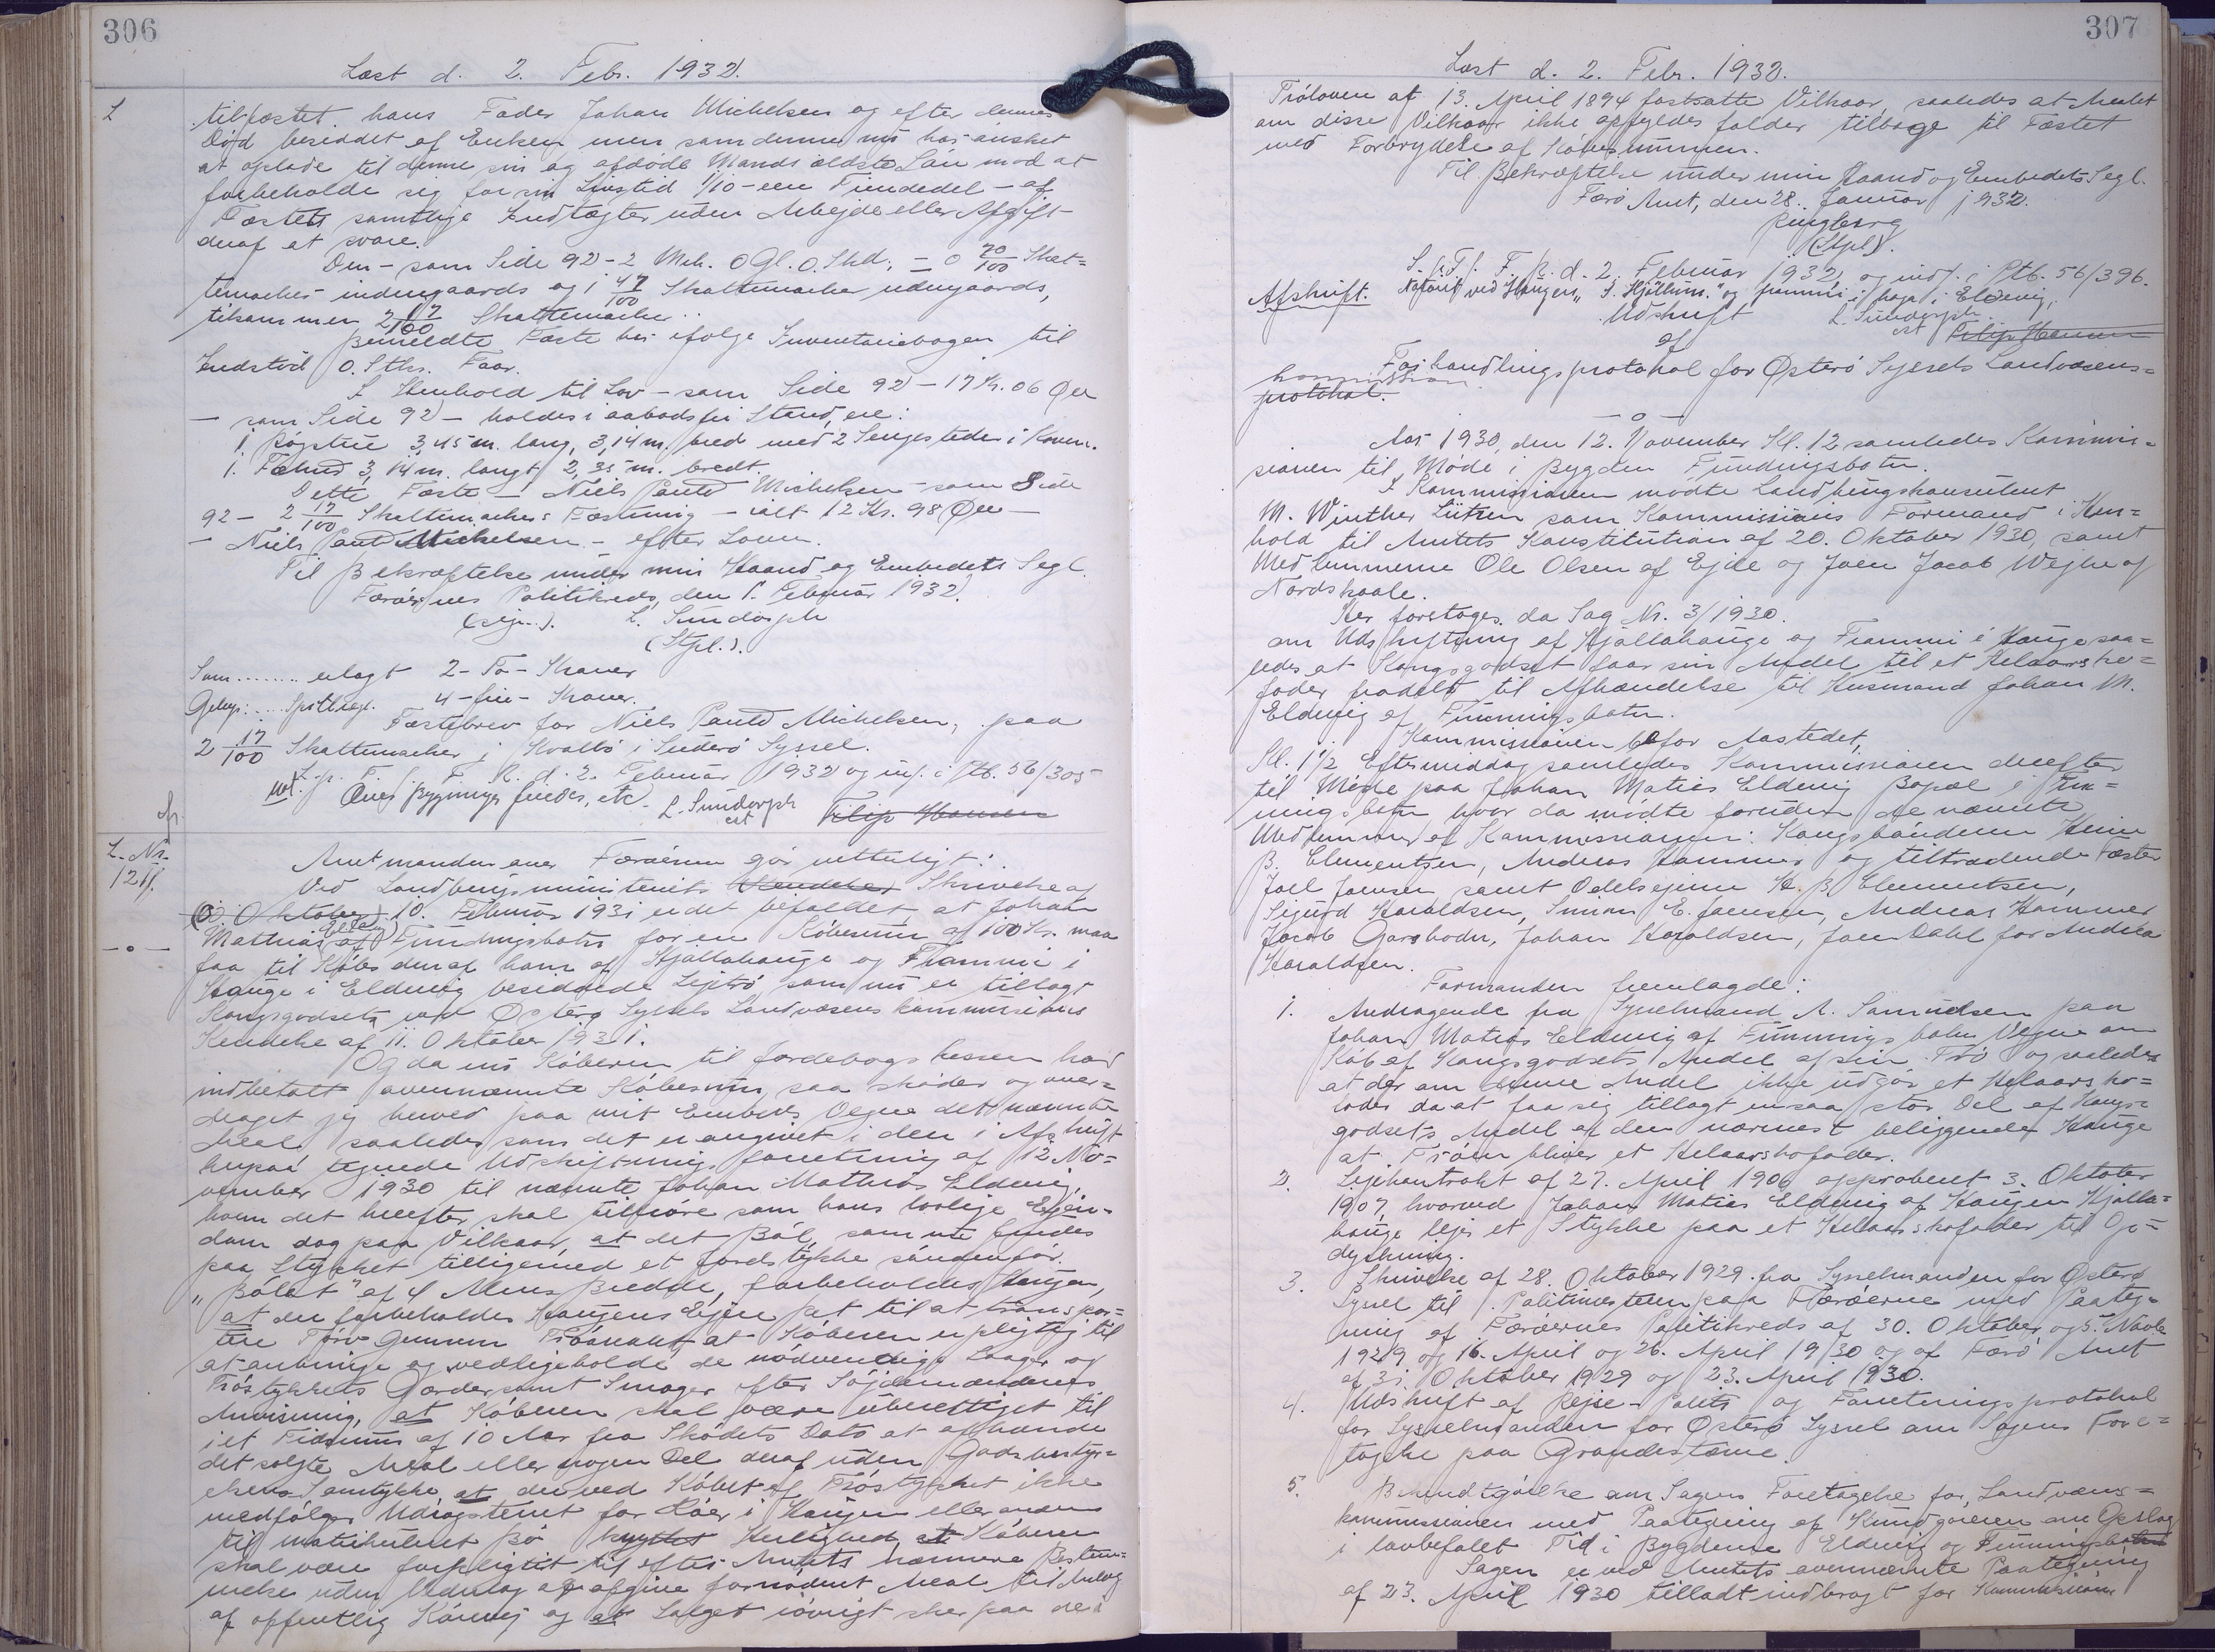 306
Læst d. 2. Febr. 1932.
L
tilfæstet hans Fader Johan Michelsen og efter dennes
Död besiddet af Enken men som denne nu har ønsket
at oplade til denne sin og afdöde Mands ældste Sön mod at
forbeholde sig for sin Livstid 1/10 - een Tiendedel - af
Fæstets samtlige Indtægter uden Arbejde eller Afgift
deraf at svare.
Den - som Side 92 - 2 Mrk. 0 Gl. 0 Skd. = 0 70/100 Skat-
temarker indengaards og 1 47/100 Skattemarker udengaards,
tilsammen 2 17/100 Skattemarker.
Bemeldte Fæste har ifølge Inventariebogen til
Indstöd 0 Stks. Faar.
I Henhold til Lov - som Side 92 - 17 Kr. 06 Øre
- som Side 92 - holdes i aabodsfri Stand, ere:
1 Rögstue 3,45 m. lang, 3,14 m. bred med 2 Sengesteder i Kove.
1. Fæhus 3,14 m. langt, 2,35 m. bredt.
Dette Fæste - Niels Pauld Michelsen - som Side
92 - 2 17/100 Skattemarkers Fæstning - ialt 12 Kr. 98 Øre -
- Niels Pauld Michelsen - efter Loven.
Til Bekræftelse under min Haand og Embedets Segl.
Færöernes Politikreds, den 1. Februar 1932.
(sign.). L. Sundorph
(Stpl.).
Som ........ erlagt 2 - To - Kroner
Gebyr: .... 4 - fire - Kroner.
Fæstebrev for Niels Pauld Michelsen, paa
2 17/100 Skattemarker i Kvalbö i Suderö Syssel.
L. p. T. f. F. R. d. 2. Februar 1932 og inf. i Ptb. 56/305
Bygninger findes, etc. L. Sundorph
cst Filip Hansen
L. Nr.
12
Amtmanden over Færöerne gör vitterligt:
Ved Landbrugsministeriets Kendelse Skrivelse af
(3. Oktober) 10. Februar 1931 er det befaldet at Johan
Mathias Eldevig af Fundingsbotn for en Köbesum af 100 Kr. maa
faa til Köbs den af ham af Hjallahauge og Frammi i
Hauge i Eldevig besiddede Lejtrö som nu er tillagt
Kongsgodset ved Østerø Syssels Landvæsenskommissions
Kendelse af 11. Oktober 1931.
Og da nu Köberen til Jordebogskassen har
indbetalt ovennævnte Köbesum, saa sköder og over-
drager jeg herved paa mit Embeds Vegne det nævnte
Areal saaledes som det er angivet i den i Afskrift
herpaa tegnede Udskiftningsforretning af 12 No-
vember 1930 til nævnte Johan Mathias Eldevig,
hvem det herefter skal tilhöre som hans lovlige Ejen-
dom dog paa Vilkaar, at det Ból, som nu findes
paa Stykket tilligemed et Jordstykke söndenfor
"Bólet" af 4 Alens Bredde, forbeholdes Haugen,
at der forbeholdes Haugens Ejere Ret til at transpor-
tere Törv gennem Tröen at Köberen er pligtig til
at anbringe og vedligeholde de nödvendige Laager og
Tröstykkets Gærder samt Smöger efter Söjdemændenes
Anvisning, at Köberen skal være uberettiget til
i et Tidsrum af 10 Aar fra Sködets Dato at afhænde
det solgte Areal eller nogen Del deraf uden Godsbestyr-
elsens Samtykke at der ved Köbet af Tröstykket ikke
medfölger Udrögterret for Köer i Haugen eller anden
til matrikuleret Bö knyttet Herlighed, at Köberen
skal være forpligtet til efter Amtets nærmere Bestem-
melse uden Vederlag at afgive fornödent Areal til Anlæg
af offentlig Körevej og at Salget iövrigt sker paa de i
307
Læst d. 2. Febr. 1932.
Tröloven af 13. April 1894 fastsatte Vilkaar, saaledes at Arealet
om disse Vilkaar ikke opfyldes falder tilbage til Fæstet
med Forbrydelse af Köbesummen.
Til Bekræftelse under min Haand og Embedets Segl.
Færö Amt, den 28. Januar 1932.
Ringberg
(Stpl).
L. p. T. f. F. R. d. 2. Februar 1932, og indf. i Ptb. 56/396.
Noteret ved Haugen "I. Hjöllum." og frammi i haga i Eldevig.
Afskrift. L. Sundorph
Udskrift cst Filip Hansen
af
Forhandlingsprotokol for Østerö Syssels Landvæsens-
kommission
protokol.
- o -
Aar 1930, den 12. November Kl. 12 samledes Kommis-
sionen til Möde i Bygden Fundingsbotn.
I Kommissionen mödte Landbrugskonsulent
M. Winther Lützen som Kommissions Formand i Hen-
hold til Amtets Konstitution af 20. Oktober 1930, samt
Medlemmerne Ole Olsen af Ejde og Joen Jacob Wejhe af
Nordskaale.
Her foretoges da Sag Nr. 3/1930.
om Udskiftning af Hjallahauge og Frammi i Hauge saa-
ledes at Kongsgodset faar sin Andel til et Helaarsko-
foder fradelt til Afhændelse til Husmand Johan M.
Eldevig af Funningsbotn.
Kommissionen befor Aastedet.
Kl. 1 1/2 Eftermiddag samledes Kommissionen derefter
til Möde paa Johan Matias Eldevig Bopæl i Fun-
ningsbotn hvor da mödte foruden de nævnte
Medlemmer af Kommissionen: Kongsbönderne Heine
B. Clementsen, Andreas Hammer og tiltrædende Fæster
Joel Joensen samt Odelsejerne H. B. Clementsen,
Sigurd Haraldsen, Simon E. Joensen, Andreas Hammer
Jacob Garshodn, Johan Haraldsen, Joen Dahl for Andrea
Haraldsen.
Formanden fremlagde:
1. Andragende fra Sysselmand A. Samuelsen paa
Johan Matias Eldevig af Funningsbotn Vegne om
Köb af Kongsgodsets Andel af sin Trö og saaledes
at der om denne Andel ikke udgör et Helaarsko-
foder da at faa sig tillagt en saa stor Del af Kongs-
godsets Andel af den nærmest beliggende Hauge
at Tröen bliver et Helaarskofoder.
2. Lejekontrakt af 27. April 1906 approberet 3. Oktober
1907, hvorved Johan Matias Eldevig af Haugen Hjalla-
hauge lejer et Stykke paa et Helaarskofoder til Op-
dyrkning.
3. Skrivelse af 28. Oktober 1929 fra Sysselmanden for Østerö
Syssel til Politimesteren paa Færöerne med Paateg-
ning af Færöernes Politikreds af 30. Oktober og 5. Novbr
1929 og 16. April og 26. April 1930 og af Færö Amt
af 31 Oktober 1929 og 23. April 1930.
4. Udskrift af Rejse- Politi og Forretningsprotokol
for Sysselmanden for Østerö Syssel om Sagens Fore-
tagelse paa Grandestævne.
5. Bekendtgörelse om Sagens Foretagelse for Landvæsens-
kommissionen med Paategning af Kundgöreren om Opslag
i lovbefalet Tid i Bygderne Eldevig og Funningsbotn
Sagen er ved Amtets ovennævnte Paategning
af 23. April 1930 tilladt indbragt for Kommissionen